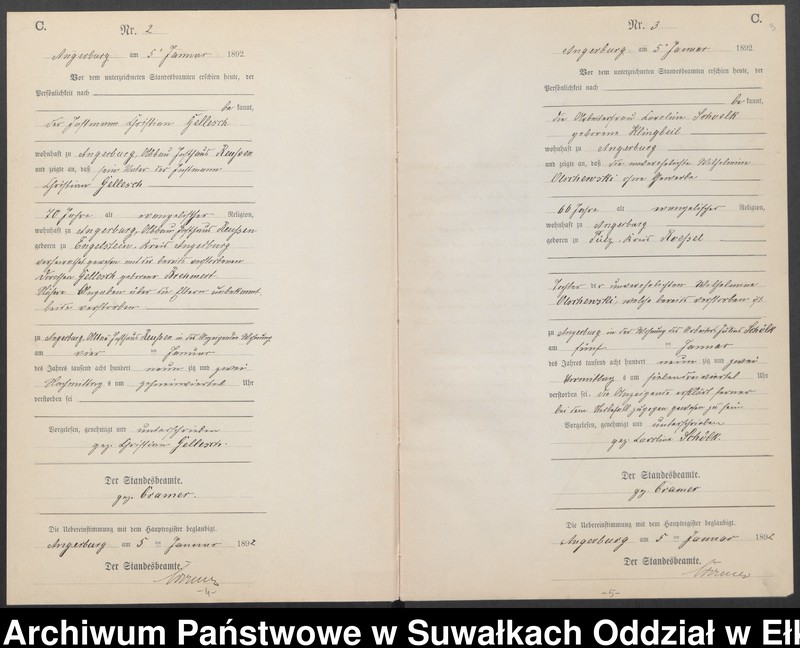 C.
Nr. 2
Angerburg am 5ten Januar 1892.
Vor dem unterzeichneten Standesbeamten erschien heute, der
Persönlichkeit nach
bekannt,
der Instmann Christian Gellesch
wohnhaft zu Angerburg, Abbau Insthaus Reussen
und zeigte an, daß sein Vater der Instmann
Christian Gellesch
70 Jahre alt evangelischer Religion,
wohnhaft zu Angerburg, Abbau Insthaus Reussen
geboren zu Engelstein, Kreis Angerburg
verheirathet gewesen mit der bereits verstorbenen
Gellesch geborene
Nähere Angaben über die Eltern unbekannt
beide verstorben
zu Angerburg, Abbau Insthaus Reussen in des Anzeigenden Wohnung
am vier ten Januar
des Jahres tausend acht hundert neun zig und zwei
Nachmittag s um Uhr
verstorben sei
Vorgelesen, genehmigt und unterschrieben
gez. Christian Gellesch.
Der Standesbeamte.
gez. Cramer.
Die Uebereinstimmung mit dem Hauptregister beglaubigt.
Angerburg am 5 ten Januar 1892
Der Standesbeamte.
Cramer
-4-
C.
3
Nr. 3
Angerburg am 5ten Januar 1892.
Vor dem unterzeichneten Standesbeamten erschien heute, der
Persönlichkeit nach
bekannt,
die Arbeiterfrau Caroline Schoelk
geborene Klingbeil
wohnhaft zu Angerburg
und zeigte an, daß die unverehelichte Wilhelmine
Olschewski ohne Gewerbe
66 Jahre alt evangelischer Religion,
wohnhaft zu Angerburg
geboren zu Kreis Roessel
Tochter der unverehelichten Wilhelmine
Olschewski, welche bereits verstorben ist
zu Angerburg in der Wohnung des Arbeiters Schölk
am fünf ten Januar
des Jahres tausend acht hundert neun zig und zwei
Vormittag s um Uhr
verstorben sei. Die Anzeigende erklärt ferner
bei dem Sterbefall zugegen gewesen zu sein
Vorgelesen, genehmigt und unterschrieben
gez. Caroline Schölk.
Der Standesbeamte.
gez. Cramer
Die Uebereinstimmung mit dem Hauptregister beglaubigt.
Angerburg am 5 ten Januar 1892
Der Standesbeamte.
Cramer
-5-
Archiwum Państwowe w Suwałkach Oddział w Ełk